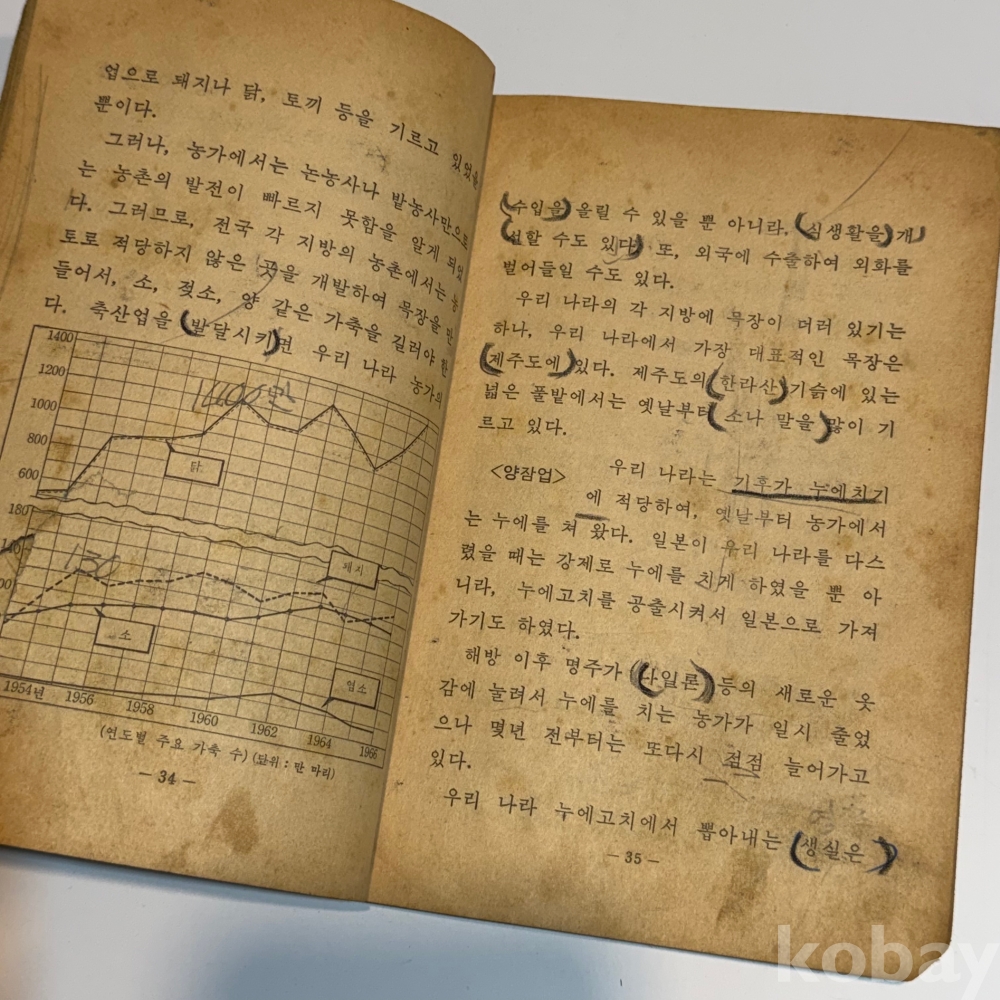 업으로 돼지나 닭, 토끼 등을 기르고 있었을
뿐이다.
그러나, 농가에서는 논농사나 밭농사만으로
는 농촌의 발전이 빠르지 못함을 알게 되었
다. 그러므로, 전국 각 지방의 농촌에서는 농
토로 적당하지 않은 곳을 개발하여 목장을 만
들어서, 소, 젖소, 양 같은 가축을 길러야 한
다. 축산업을 (발달시키)면 우리 나라 농가의
1400
1200
1000
800
600
180
1400만
닭
돼지
130
소
염소
1954년 1956 1958 1960 1962 1964 1966
(연도별 주요 가축 수) (단위 : 만 마리)
— 34 —
(수입을) 올릴 수 있을 뿐 아니라. (식생활을) 개
선할 수도 있다) 또, 외국에 수출하여 외화를
벌어들일 수도 있다.
우리 나라의 각 지방에 목장이 더러 있기는
하나, 우리 나라에서 가장 대표적인 목장은
(제주도에) 있다. 제주도의 (한라산) 기슭에 있는
넓은 풀밭에서는 옛날부터 (소나 말을) 많이 기
르고 있다.
<양잠업> 우리 나라는 기후가 누에치기
에 적당하여, 옛날부터 농가에서
는 누에를 쳐 왔다. 일본이 우리 나라를 다스
렸을 때는 강제로 누에를 치게 하였을 뿐 아
니라, 누에고치를 공출시켜서 일본으로 가져
가기도 하였다.
해방 이후 명주가 (나일론) 등의 새로운 옷
감에 눌려서 누에를 치는 농가가 일시 줄었
으나 몇년 전부터는 또다시 점점 늘어가고
있다.
우리 나라 누에고치에서 뽑아내는 (생실은)
— 35 —
kobay